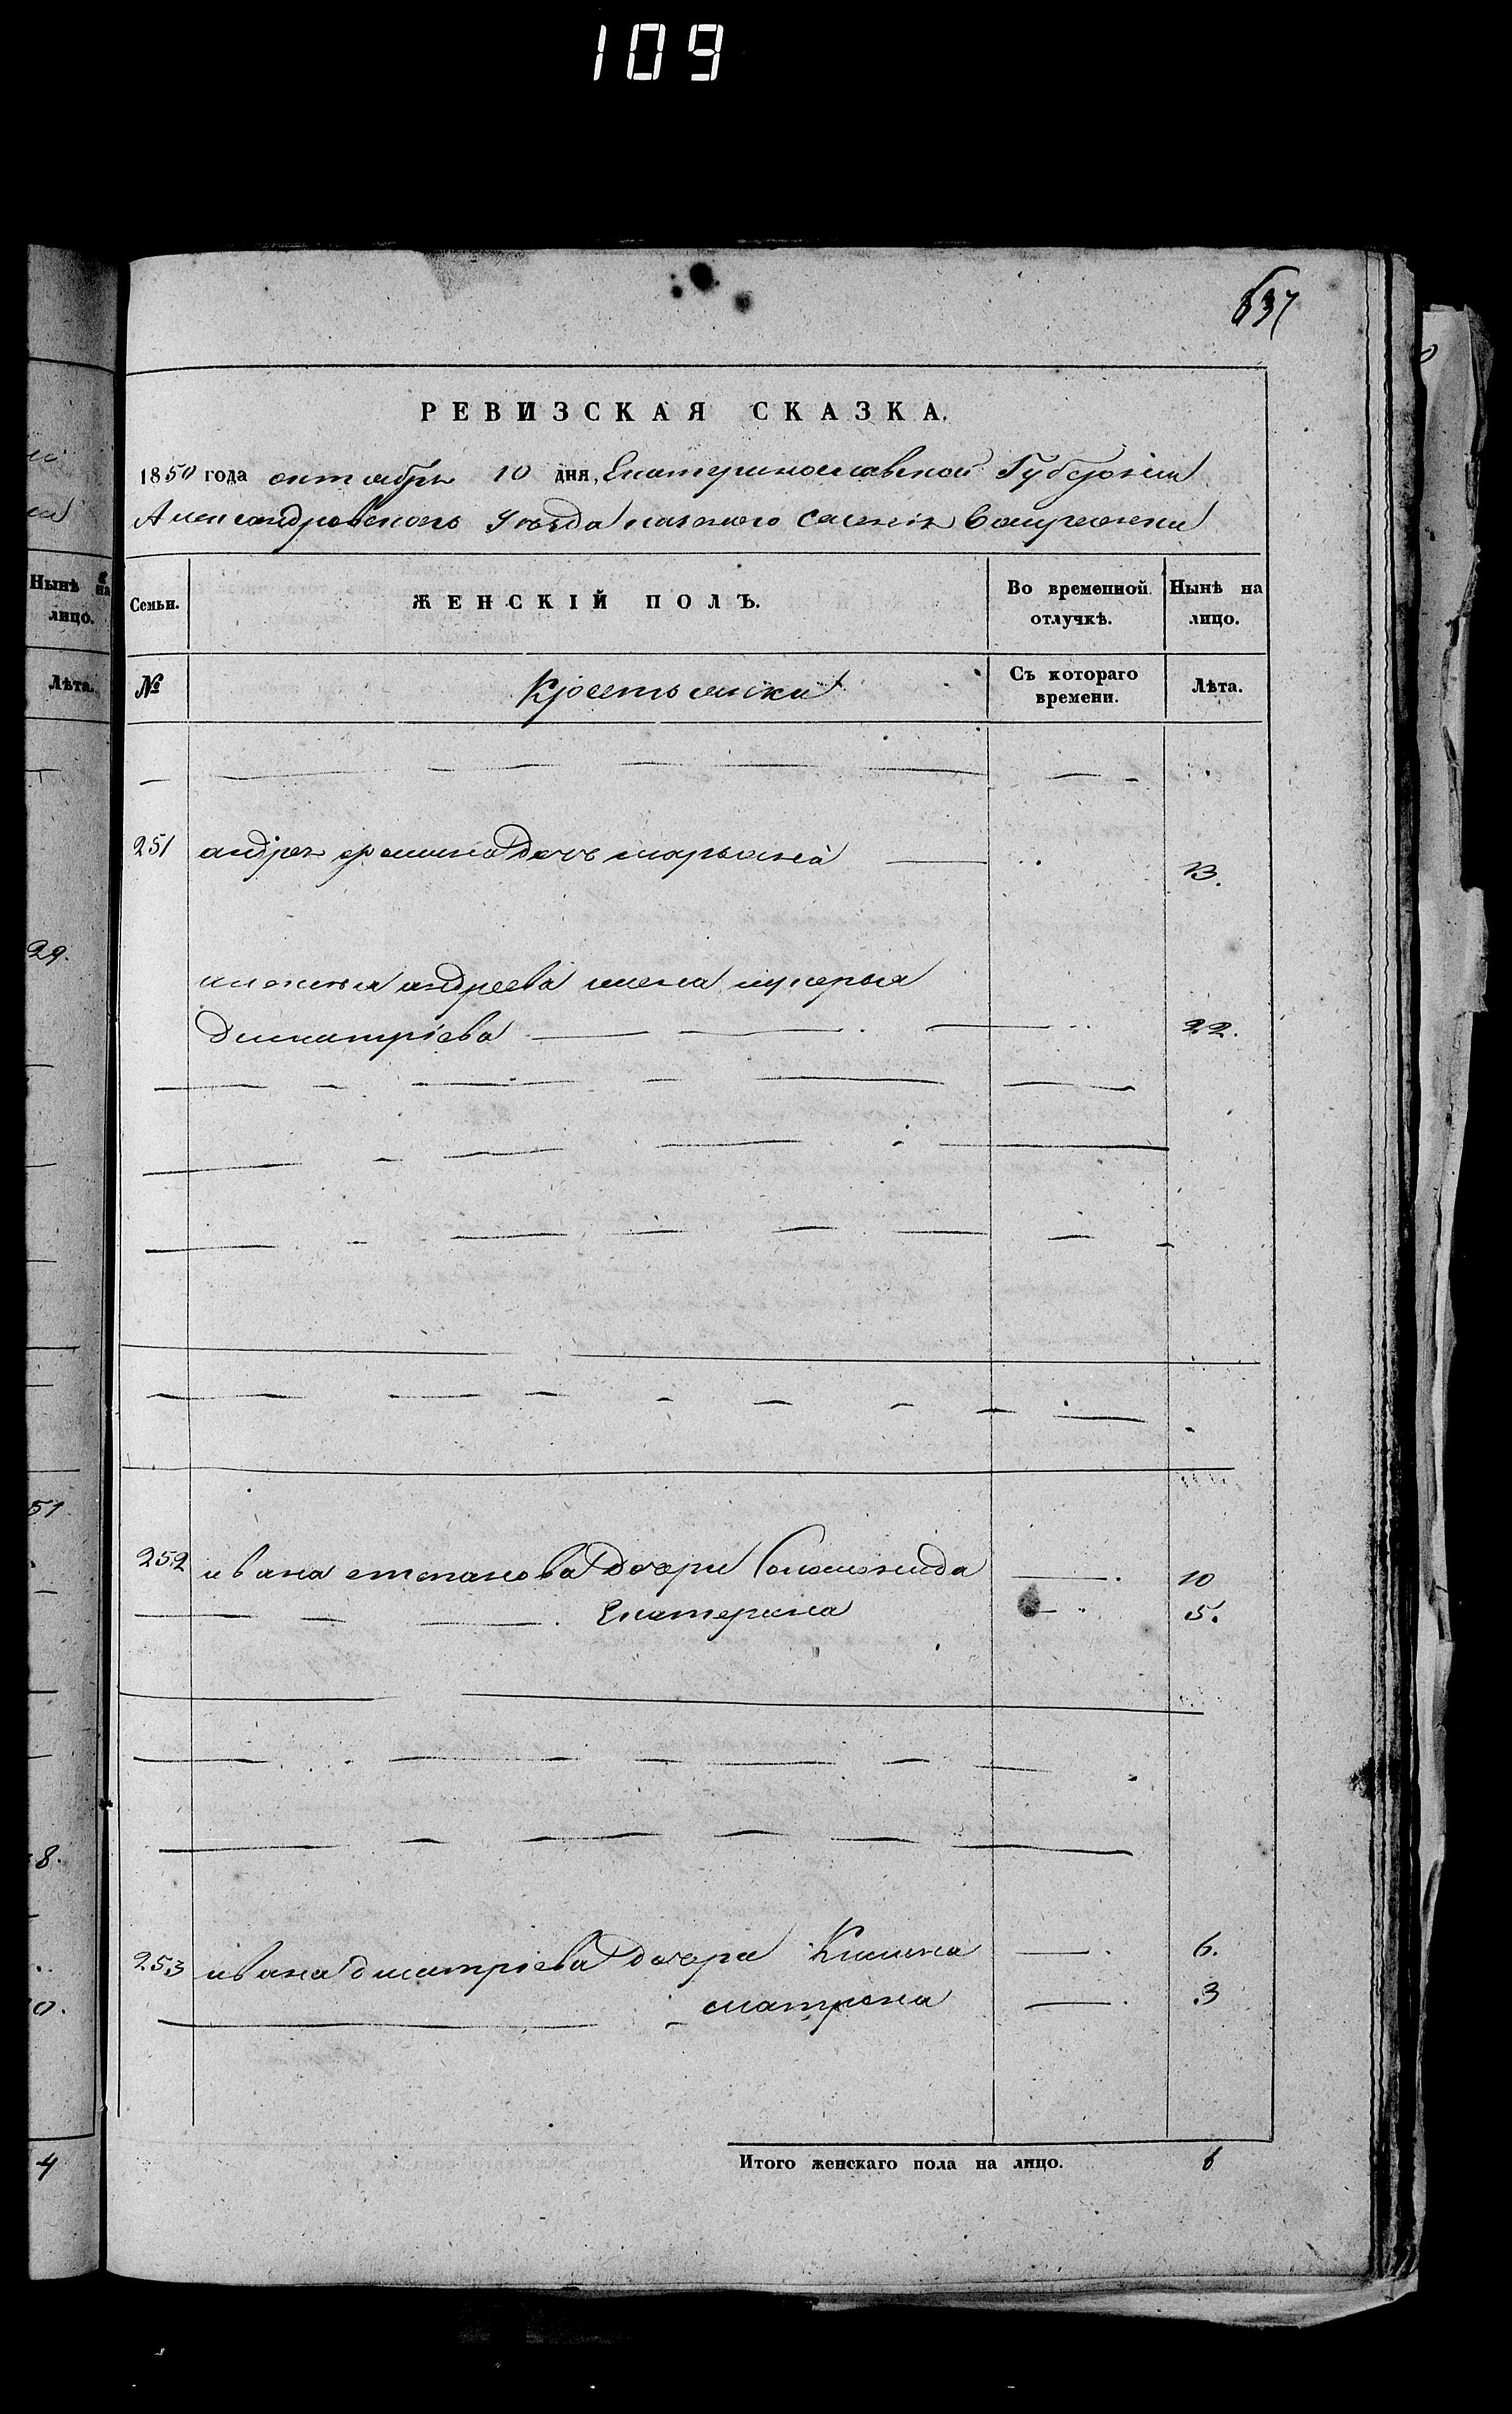 109
637
РЕВИЗСКАЯ СКАЗКА.
1850 года октября 10 дня, Екатеринославской Губернiи
Александровскаго Уѣзда казеннаго селенiя
Нынѣ на
лицо.
Лѣта.
Семьи.
ЖЕНСКІЙ ПОЛЪ.
Во временной отлучкѣ.
Нынѣ на лицо.
№
Крестьянки
Съ котораго времени.
Лѣта.
251 андрея дочь марьяна 13.
29.
андреева жена лукерья
Димитрiева 22.
51
252 ивана степанова Дочери Соломонида 10
Екатерина 5.
8.
253 ивана димитрiева Дочери 6.
матрона 3
0.
4
Итого женскаго пола на лицо. 6